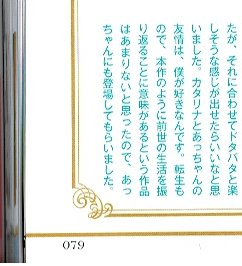 たが、それに合わせてドタバタと楽
しそうな感じが出せたらいいなと思
いました。カタリナとあっちゃんの
友情は、僕が好きなんです。転生も
ので、本作のように前世の生活を振
り返ることに意味があるという作品
はあまりないと思ったので、あっ
ちゃんにも登場してもらいました。
079